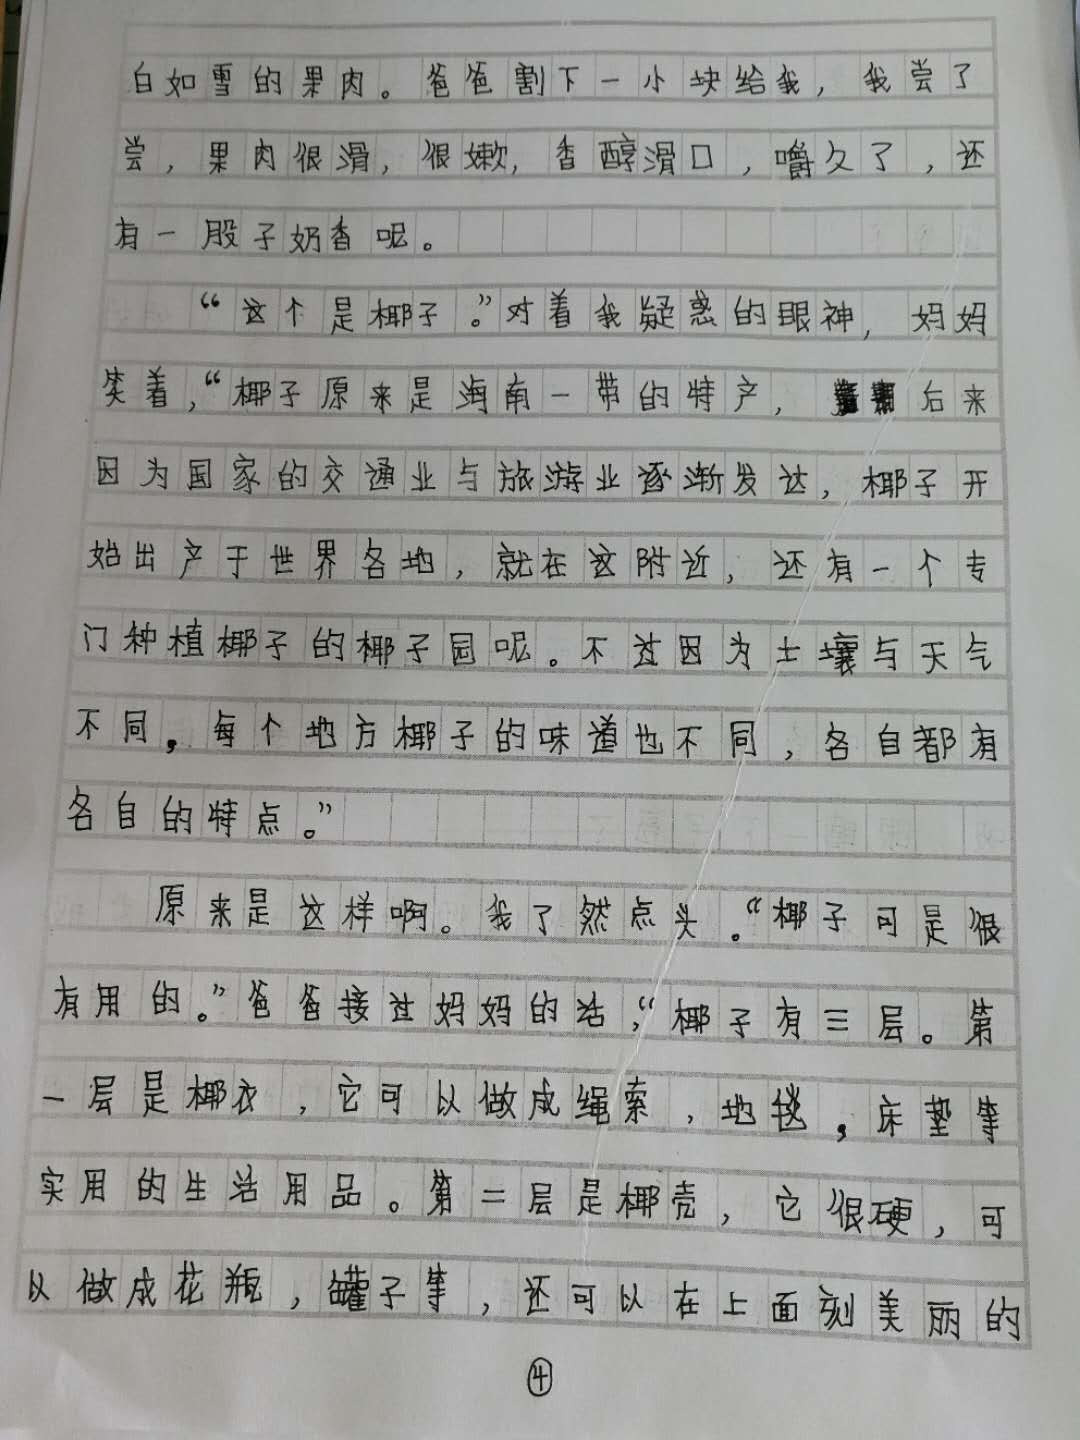 白如雪的果肉。爸爸割下一小块给我，我尝了
尝，果肉很滑，很嫩，香醇滑口，嚼久了，还
有一股子奶香呢。
“这个是椰子。”对着我疑惑的眼神，妈妈
笑着，“椰子原来是海南一带的特产，后来
因为国家的交通业与旅游业逐渐发达，椰子开
始出产于世界各地，就在这附近，还有一个专
门种植椰子的椰子园呢。不过因为土壤与天气
不同，每个地方椰子的味道也不同，各自都有
各自的特点。”
原来是这样啊。我了然点头。“椰子可是很
有用的。”爸爸接过妈妈的话，“椰子有三层。第
一层是椰衣，它可以做成绳索，地毯，床垫等
实用的生活用品。第二层是椰壳，它很硬，可
以做成花瓶，罐子等，还可以在上面刻美丽的
④